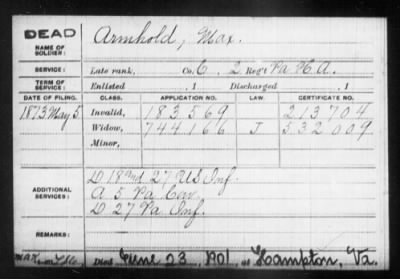 DEAD
NAME OF SOLDIER: Armhold, Max.
SERVICE: Late rank, Co. C, 2 Reg't Pa H. A.
TERM OF SERVICE: Enlisted , 1 Discharged , 1
DATE OF FILING. CLASS. APPLICATION NO. LAW. CERTIFICATE NO.
1873 May 5. Invalid, 183569 213704
Widow, 744166 J 532009
Minor,
ADDITIONAL SERVICES:
D 18 and 27 US Inf.
A 5 Pa Cav.
D 27 Pa Inf.
REMARKS:
Died June 23, 1901, at Hampton, Va.